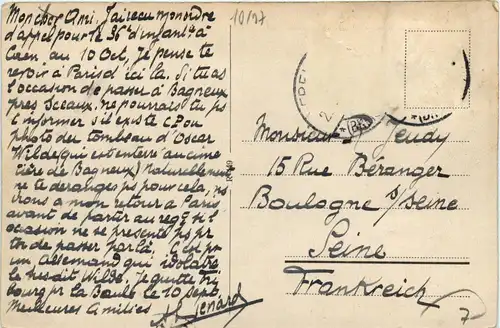 10/27
Mon cher Ami. J'ai recu mon ordre
d'appel pour le 36e d'infant. à
Caen, au 10 Oct, je pense te
revoir à Paris d'ici là. Si tu as
l'occasion de passer à Bagneux
près Sceaux, ne pourrais tu ps
t'informer s'il existe C.P ou
photo du tombeau d'Oscar
Wilde (qui est enterré au cime
tière de Bagneux) naturellement
ne te déranges ps pour cela, ns
irons a mon retour à Paris
avant de partir au regt si l'
occasion ne se présente ps pr
toi de passer par là. C'est pr
un allemand qui idolatre
le susdit Wilde. Je quitte Fri
bourg pr la Baule le 10 sept
Meilleures amitiés
Monsieur Jeudy
15 Rue Béranger
Boulogne s/Seine
Seine
Frankreich
7